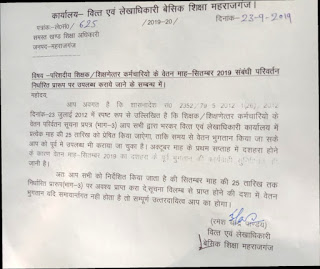 कार्यालय– वित्त एवं लेखाधिकारी बेसिक शिक्षा महराजगंज।
पत्रांक–ले०सं०/ 625 /2019–20/ दिनांक– 23-9-2019
समस्त खण्ड शिक्षा अधिकारी
जनपद–महराजगंज
विषय–परिषदीय शिक्षक/शिक्षणेत्तर कर्मचारियों के वेतन माह–सितम्बर 2019 संबंधी परिवर्तन
निर्धारित प्रारूप पर उपलब्ध कराये जाने के सम्बन्ध में।
महोदय,
आप अवगत है कि शासनादेश सं0 2352/ 79 5 2012
दिनांक–23 जुलाई 2012 में स्पष्ट रूप से उल्लिखित है कि शिक्षक/शिक्षणेत्तर कर्मचारियों के
वेतन परिवर्तन सूचना प्रपत्र (भाग–3) आप सभी द्वारा भरकर वित्त एवं लेखाधिकारी कार्यालय में
प्रत्येक माह की 25 तारिख को प्रेषित किया जाएगा, ताकि समय से वेतन भुगतान किया जा सके
आप को पूर्व में उपलब्ध भी कराया जा चुका है। अक्टूबर माह के प्रथम सप्ताह में दशहरा होने
के कारण वेतन माह–सितम्बर 2019 का दशहरा के पूर्व भुगतान की कार्यवाही
जानी है।
अतः आप सभी को निर्देशित किया जाता है की सितम्बर माह की 25 तारिख तक
निर्धारित प्रारूप(भाग–3) पर अवश्य प्राप्त करा दे,सूचना विलम्ब से प्राप्त होने की दशा मे वेतन
भुगतान यदि समयान्तर्गत नहीं होता है तो सम्पूर्ण उत्तरदायित्व आप का होगा।
(रमेश
वित्त एवं लेखाधिकारी
बेसिक शिक्षा महराजगंज